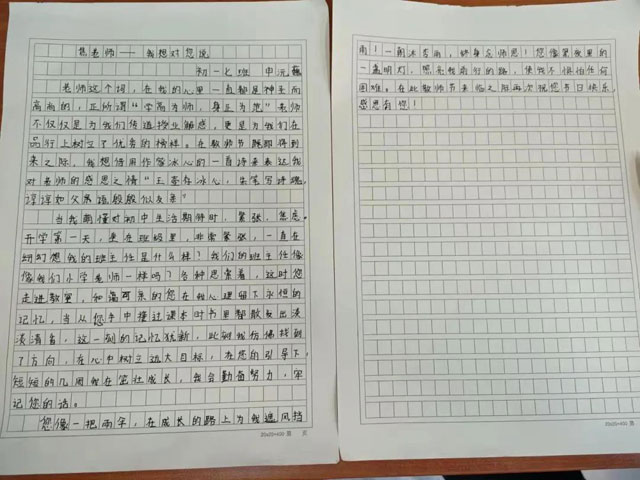 老师——我想对您说
初一七班 申元
老师这个词，在我的心里一直都是神圣而
高尚的，正所谓“学高为师，身正为范”老师
不仅仅是为我们传道授业解惑，更是为我们在
品行上树立了优秀的榜样。在教师节即将到
来之际，我想借用作家冰心的一首诗来表达我
对老师的感恩之情“玉壶存冰心，朱笔写师魂，
谆谆如父亲语殷殷似友亲”
当我懵懂对初中生活期待时，紧张，焦虑。
开学第一天，坐在班级里，非常紧张，一直在
幻想我的班主任是什么样？我们的班主任像
像我们小学老师一样吗？各种思索着，这时您
走进教室，和蔼可亲的您在我心里留下永恒的
记忆，当从您手中接过课本时书里都散发出淡
淡清香，这一刻的记忆犹新，此时我仿佛找到
了方向，在心中树立远大目标，在您的引导下，
短短的几周我在茁壮成长，我会勤奋努力，牢
记您的话。
您像一把雨伞，在成长的路上为我遮风挡
雨！一片冰心，终身念师恩！您像黑夜里的
一盏明灯，照亮我前行的路，使我不惧怕任何
困难。在此教师节来临之际再次祝您节日快乐，
感恩有您！
20x20=400 第 页